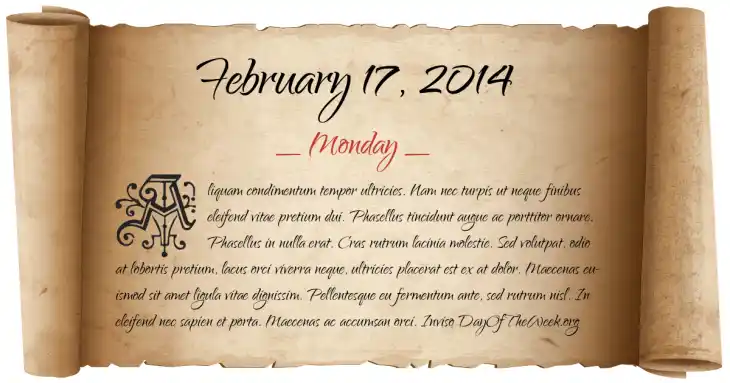 February 17, 2014
_ Monday _
Aliquam condimentum tempor ultricies. Nam nec turpis ut neque finibus
eleifend vitae pretium dui. Phasellus tincidunt augue ac porttitor ornare.
Phasellus in nulla erat. Cras rutrum lacinia molestie. Sed volutpat, odio
at lobortis pretium, lacus orci viverra neque, ultricies placerat est ex at dolor. Maecenas eu-
ismod sit amet ligula vitae dignissim. Pellentesque eu fermentum ante, sed rutrum nisl. In
eleifend nec sapien et porta. Maecenas ac accumsan orci. Inviso DayOfTheWeek.org